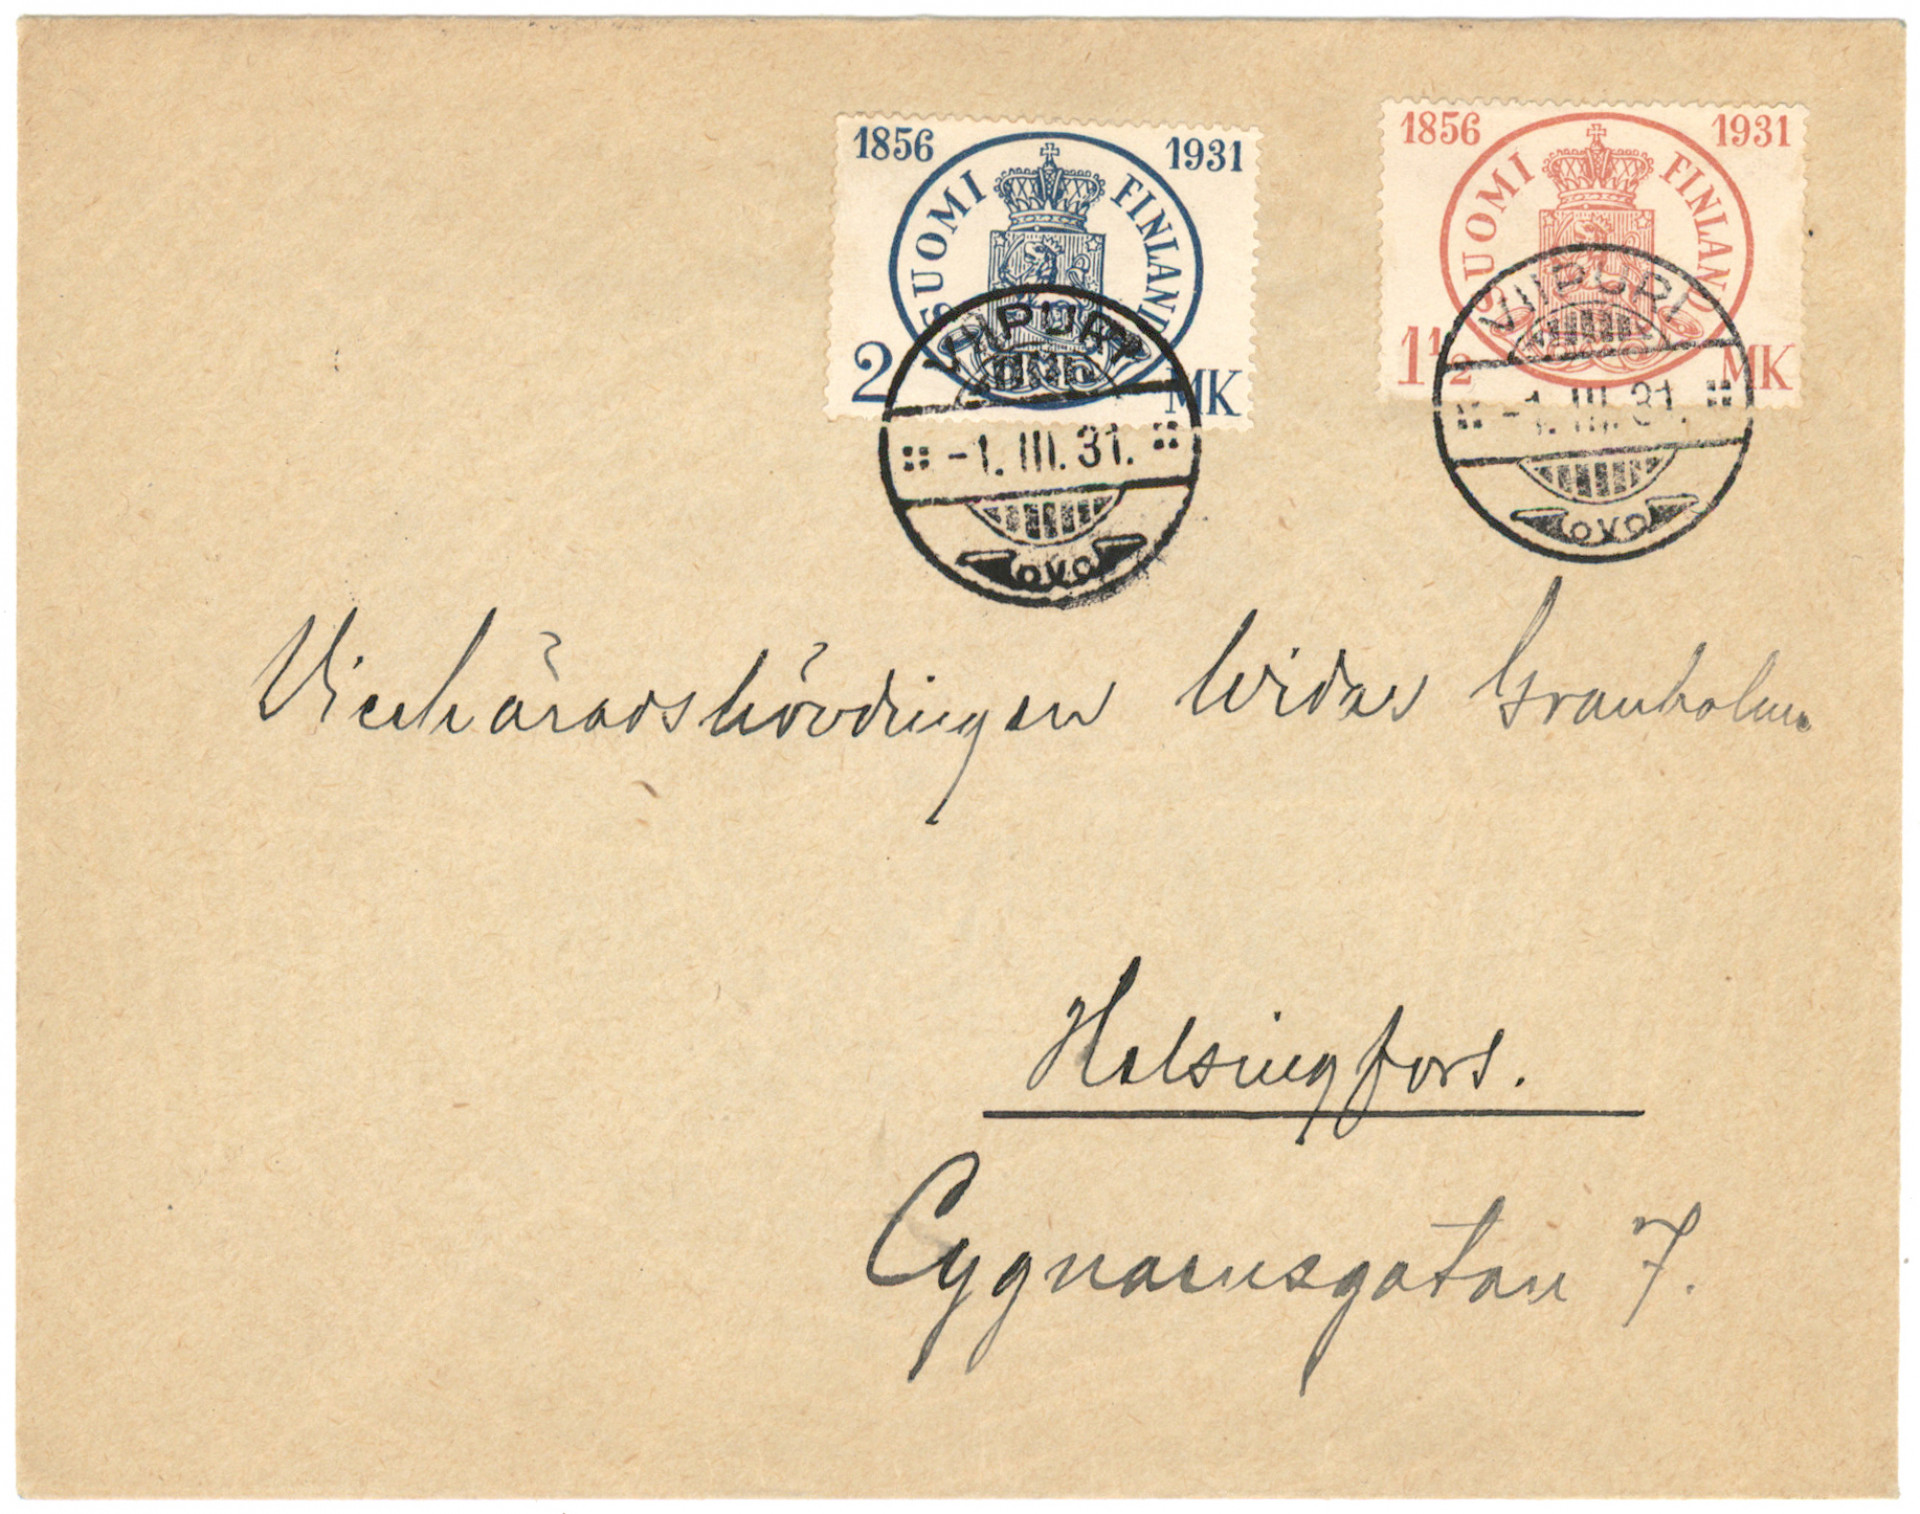 1856 1931
SUOMI FINLAND
2 MK
1856 1931
SUOMI FINLAND
1 1/2 MK
VIIPURI
-1.III.31.
VIIPURI
-1.III.31.
Vicehäradshövdingen Widar Granholm
Helsingfors.
Cygnaeusgatan 7.